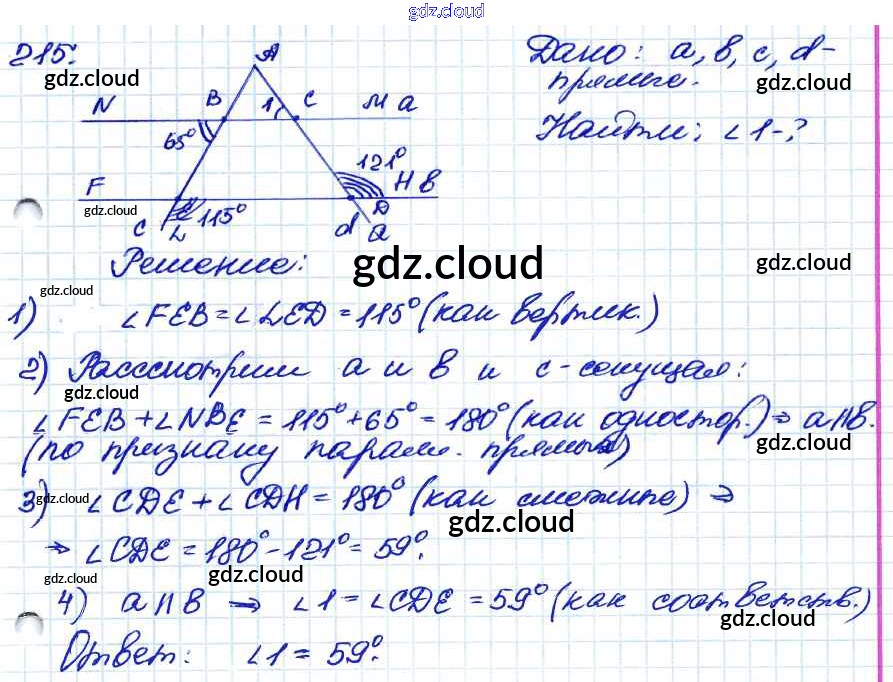 gdz.cloud
215.
Дано: a, b, c, d-
прямые.
Найти: ∠1-?
A
N B 1 C M a
65°
121°
F H b
115° D
c L d a
Решение:
1) ∠FEB=∠LED=115° (как вертик.)
2) Расссмотрим a и b и c-секущая:
∠FEB+∠NBE=115°+65°=180° (как одностор.)⇒ a||b.
(по признаку паралл. прямых)
3) ∠CDE+∠CDH=180° (как смежные) ⇒
⇒ ∠CDE=180°-121°=59°.
4) a||b ⇒ ∠1=∠CDE=59° (как соответств.)
Ответ: ∠1=59°.
gdz.cloud
gdz.cloud
gdz.cloud
gdz.cloud
gdz.cloud
gdz.cloud
gdz.cloud
gdz.cloud
gdz.cloud
gdz.cloud
gdz.cloud
gdz.cloud
gdz.cloud